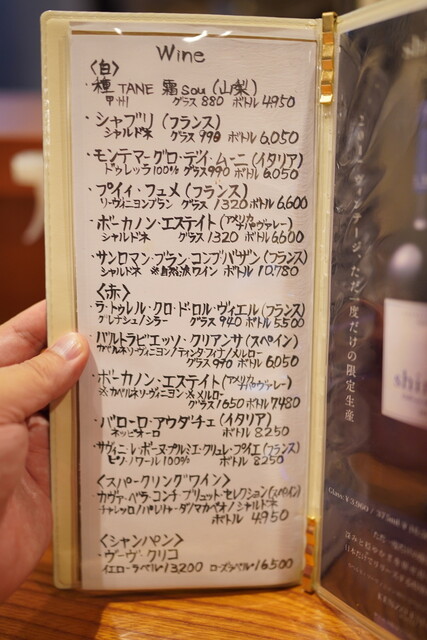 Wine
〈白〉
・種 TANE 霜 Sou (山梨)
甲州 グラス 880 ボトル 4,950
・シャブリ (フランス)
シャルドネ グラス 990 ボトル 6,050
・モンテマーグロ・デイ・ムーニ (イタリア)
ドゥレッラ100% グラス 990 ボトル 6,050
・プイィ・フュメ (フランス)
ソーヴィニヨンブラン グラス 1320 ボトル 6,600
・ボーカノン・エステイト (アメリカ ナパヴァレー)
シャルドネ グラス 1320 ボトル 6600
・サンロマン・ブラン コンブ バザン (フランス)
シャルドネ ※自然派ワイン ボトル 10,780
〈赤〉
・ラ・トゥレル・クロ・ド・ロル・ヴィエル (フランス)
グルナシュ/シラー グラス 940 ボトル 5,500
・バルトラビエッソ・クリアンサ (スペイン)
カベルネソーヴィニヨン/ティンタフィナ/メルロー
グラス 990 ボトル 6,050
・ボーカノン・エステイト (アメリカ ナパヴァレー)
※カベルネソーヴィニヨン ※メルロー
グラス 1650 ボトル 7,480
・バローロ・アウダチェ (イタリア)
ネッビオーロ ボトル 8250
・サヴィニ・レ・ボーヌ・プルミエ・クリュ・レ・プイエ (フランス)
ピノノワール 100% ボトル 8250
〈スパークリングワイン〉
・カヴァ・ベラ・コンチ ブリュット・セレクション (スペイン)
チャレッロ/パレリャーダ/マカベオ/シャルドネ
ボトル 4,950
〈シャンパン〉
・ヴーヴ・クリコ
イエローラベル 13,200 ローズラベル 16,500
ヴィンテージ、ただ一度だけの限定生産
shi
Glass ¥3,960 / 375ml